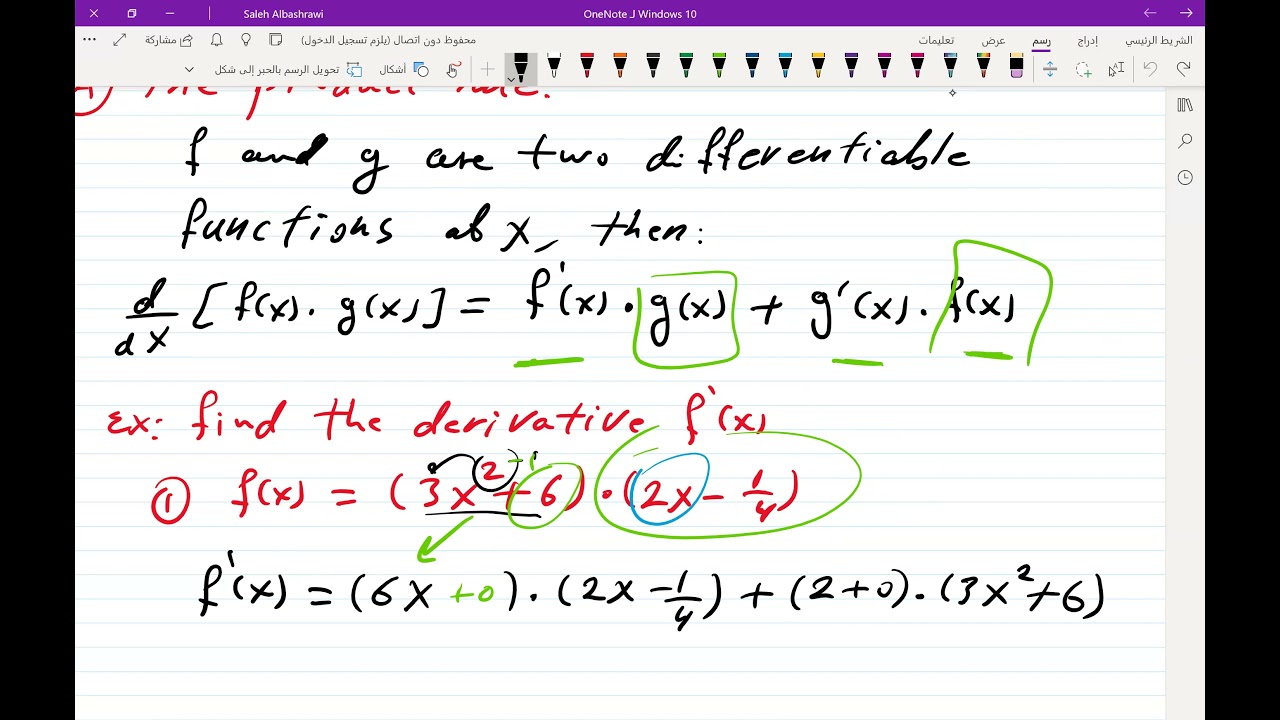 Saleh Albashrawi
OneNote لـ Windows 10
الشريط الرئيسي إدراج رسم عرض تعليمات
محفوظ دون اتصال (يلزم تسجيل الدخول) مشاركة
أشكال تحويل الرسم بالحبر إلى شكل
The product rule:
f and g are two differentiable
functions at x, then:
d/dx [f(x) . g(x)] = f'(x) . g(x) + g'(x) . f(x)
Ex: find the derivative f'(x)
① f(x) = (3x² + 6) . (2x - 1/4)
-1
f'(x) = (6x +0) . (2x - 1/4) + (2+0) . (3x²+6)